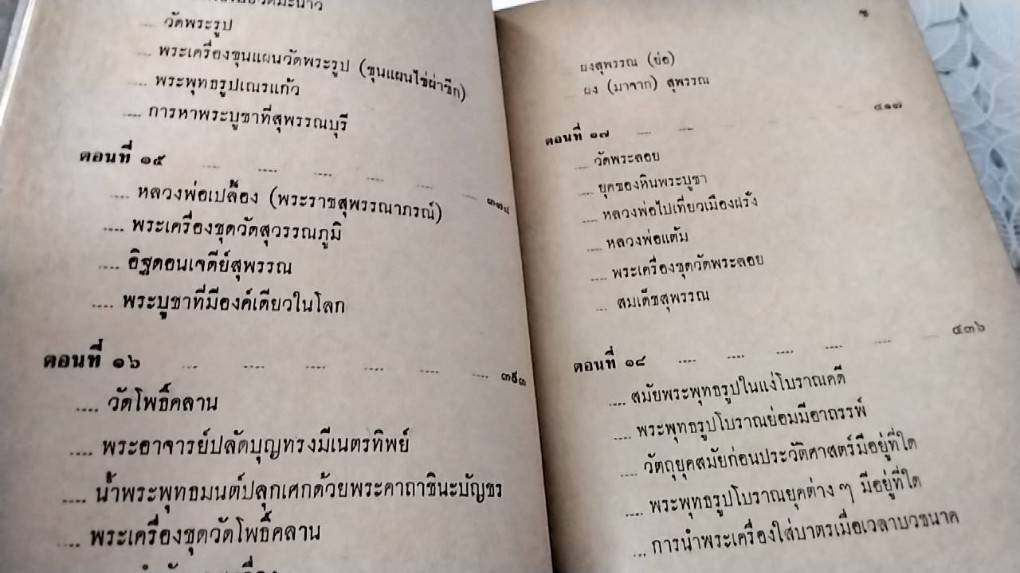 วัดพระรูป
.... พระเครื่องขุนแผนวัดพระรูป (ขุนแผนไข่ผ่าซีก)
.... พระพุทธรูปเณรแก้ว
.... การหาพระบูชาที่สุพรรณบุรี
ตอนที่ ๑๕ .... .... .... .... ....
.... หลวงพ่อเปลื้อง (พระราชสุพรรณาภรณ์)
.... พระเครื่องชุดวัดสุวรรณภูมิ
.... อิฐดอนเจดีย์สุพรรณ
.... พระบูชาที่มีองค์เดียวในโลก
ตอนที่ ๑๖ .... .... .... .... .... ๓๙๓
.... วัดโพธิ์คลาน
.... พระอาจารย์ปลัดบุญทรงมีเนตรทิพย์
.... น้ำพระพุทธมนต์ปลุกเศกด้วยพระคาถาชินะบัญชร
.... พระเครื่องชุดวัดโพธิ์คลาน
ช
ผงสุพรรณ (ย่อ)
.... ผง (มาจาก) สุพรรณ
ตอนที่ ๑๗ .... .... .... .... .... ๔๑๗
.... วัดพระลอย
.... ยุคของหินพระบูชา
.... หลวงพ่อไปเที่ยวเมืองฝรั่ง
.... หลวงพ่อแต้ม
.... พระเครื่องชุดวัดพระลอย
.... สมเด็จสุพรรณ
ตอนที่ ๑๘ .... .... .... .... .... ๔๓๖
.... สมัยพระพุทธรูปในแง่โบราณคดี
.... พระพุทธรูปโบราณย่อมมีอาถรรพ์
.... วัตถุยุคสมัยก่อนประวัติศาสตร์มีอยู่ที่ใด
.... พระพุทธรูปโบราณยุคต่าง ๆ มีอยู่ที่ใด
.... การนำพระเครื่องใส่บาตรเมื่อเวลาบวชนาค